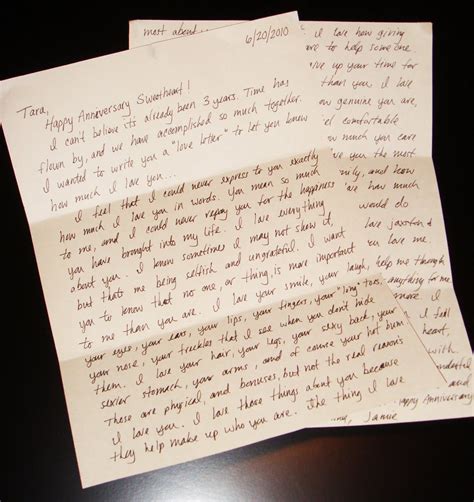 6/20/2010
Tara,
Happy Anniversary Sweetheart!
I can't believe its already been 3 years. Time has
flown by, and we have accomplished so much together.
I wanted to write you a "love letter" to let you know
how much I love you...
I feel that I could never express to you exactly
how much I love you in words. You mean so much
to me, and I could never repay you for the happiness
you have brought into my life. I love everything
about you. I know sometimes I may not show it,
but thats me being selfish and ungrateful. I want
you to know that no one, or thing, is more important
to me than you are. I love your smile, your laugh,
your eyes, your ears, your lips, your fingers, your "long" toes,
your nose, your freckles that I see when you don't hide
them. I love your hair, your legs, your sexy back, your
sexier stomach, your arms, and of course your hot bum.
These are physical, and bonuses, but not the real reasons
I love you. I love those things about you because
they help make up who you are. The thing I love
most about
I love how giving
are to help someone
give up your time for
than you. I love
how genuine you are,
feel comfortable
how much you care
love you the most
and know
how much
would do
love jaxston &
love me.
help me through
anything for me
more. I
I feel
heart,
with
and
Happy Anniversary
Jamie